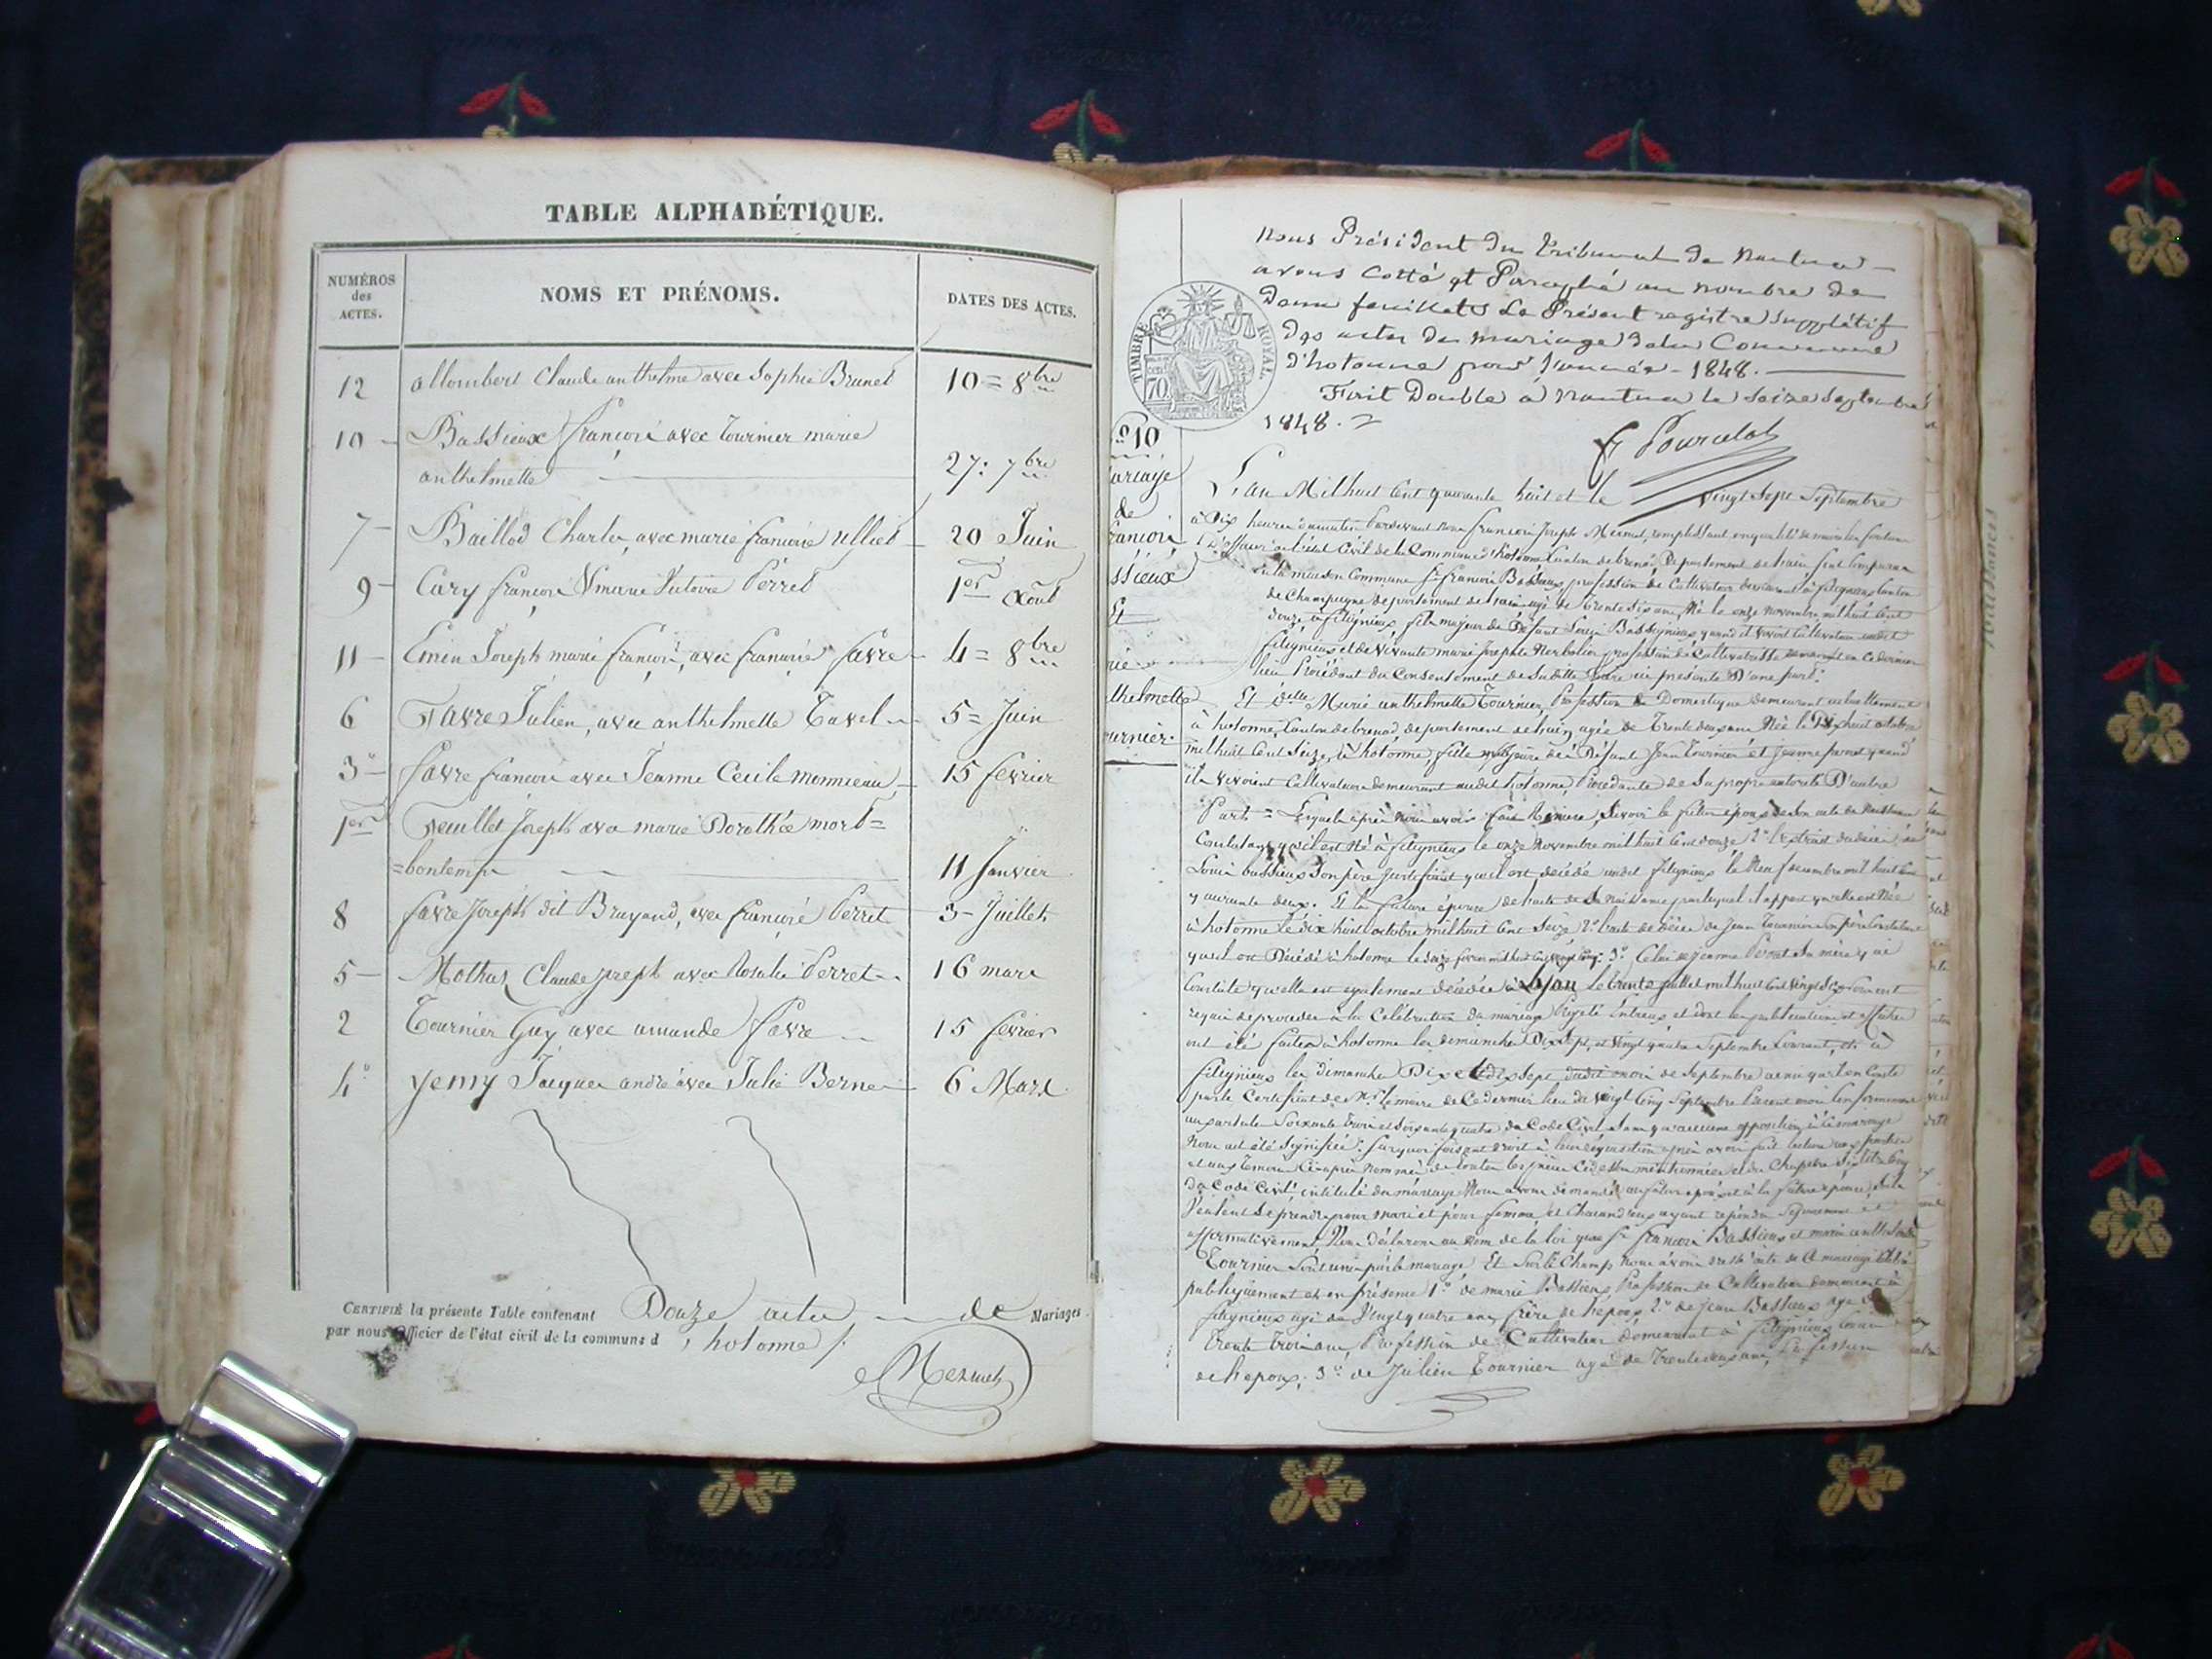 TABLE ALPHABÉTIQUE.
NUMÉROS des ACTES.
NOMS ET PRÉNOMS.
DATES DES ACTES.
12 allombert Claude anthelme avec Sophie Brunet 10 = 8bre
10 - Bassieux françois avec Tournier marie
anthelmette 27: 7bre
7 - Baillod Charles, avec marie françoise 20 Juin
9 - Cary françois & marie Victoire Perret 1er Août
11 - Emin Joseph marie françois, avec françoise favre 4 = 8bre
6 Favre Julien, avec anthelmette Tavel 5 = Juin
3° favre françois avec Jeanne Cecile monnieau 15 fevrier
1er Joseph avec marie Dorothée mort=
=bontemps 11 Janvier
8 favre Joseph dit Brayand, avec françoise Perret 3 - Juillet
5 - Claude joseph avec Rosalie Perret 16 mars
2 Tournier Guy avec amande favre 15 fevrier
4° yenny Jacques andré avec Julie Berne 6 Mars
CERTIFIÉ la présente Table contenant Douze actes de Mariages
par nous Officier de l'état civil de la commune d'hotonne
TIMBRE ROYAL
70
Nous Président du Tribunal de Nantua
avons Cotté et Paraphé au nombre de
feuillets Le Présent registre Supplétif
des actes de mariage de la Commune
d'hotonne pour l'année - 1848.
Fait Double à Nantua le Seize Septembre
1848.
n°10
ariage
de
rançois
ssieux
Et
rie
thelmette
urnier
L'an Mil huit Cent quarante huit et le vingt Sept Septembre
à Dix heures du matin Pardevant nous françois Joseph
de l'état Civil de la Commune d'hotonne Canton de brenod, Département de l'ain
en la maison Commune Sr françois Bassieux, profession de Cultivateur demeurant à
de Champagne département de l'ain agé de Trente Six ans, Né le onze Novembre mil huit Cent
douze, à fils majeur de Défunt Louis quand il vivoit Cultivateur audit
et de Vivante marie Josephte profession de Cultivatrice
lieu Procédant du Consentement de Sadite mère ici présente D'une part:
Et delle Marie anthelmette Tournier, Profession de Domestique demeurant actuellement
à hotonne, Canton de brenod, département de l'ain, agée de Trente deux ans Née le Dix huit octobre
mil huit Cent Seize, à hotonne, fille majeure de Défunt Jean Tournier et Jeanne quand
ils vivoient Cultivateurs demeurant audit hotonne, Procédante de Sa propre autorité D'autre
Part = Lesquels après nous avoir fait Savoir le futur époux de Son acte de Naissance
Constatant qu'il est Né à le onze Novembre mil huit Cent douze, 2° de
Louis Son père Justifiant qu'il est décédé audit le Neuf mil huit Cent
quarante deux. Et la future épouse de l'acte de Sa Naissance par lequel il appert qu'elle est Née
à hotonne Le dix huit octobre mil huit Cent Seize 2° l'acte de décès de Jean Tournier Son père Constatant
qu'il est Décédé à hotonne 3° Celui de Jeanne Sa mère qui
Constate qu'elle est également décédée à Lyon le trente Juillet mil huit Cent Vingt
requis de procéder à la Célébration du mariage Projeté Entr'eux et dont les publications et affiches
ont été faites à hotonne les dimanches Dix Sept, et Vingt quatre Septembre Courant, et à
les dimanches Dix et dix Sept, dudit mois de Septembre ainsi qu'il en Conste
par le Certificat de Mr Lemaire de Ce dernier lieu du Vingt Cinq Septembre Courant mois
Soixante trois et Soixante quatre du Code Civil Sans qu'aucune opposition au mariage
Nous ait été Signifiée: faisant droit à leur réquisition après avoir fait lecture aux parties
et aux Témoins Ci-après nommés de toutes les pièces Ci dessus mentionnées et du Chapitre Six
du Code Civil intitulé du mariage Nous avons demandé au futur époux et à la future épouse, S'ils
Veulent Se prendre pour mari et pour femme et Chacun d'eux ayant répondu Séparement et
affirmativement, Nous Déclarons au Nom de la loi que Sr françois Bassieux et marie anthelmette
Tournier Sont unis par le mariage Et Sur le Champ Nous avons dressé l'acte de Ce mariage
publiquement et en présence 1° de marie Bassieux, Profession de Cultivateur demeurant à
agé de Vingt quatre ans, frère de l'époux, 2° de Jean Bassieux agé de
trente trois ans, Profession de Cultivateur demeurant à
de l'epoux; 3° de Julien Tournier agé de Trente deux ans, Profession